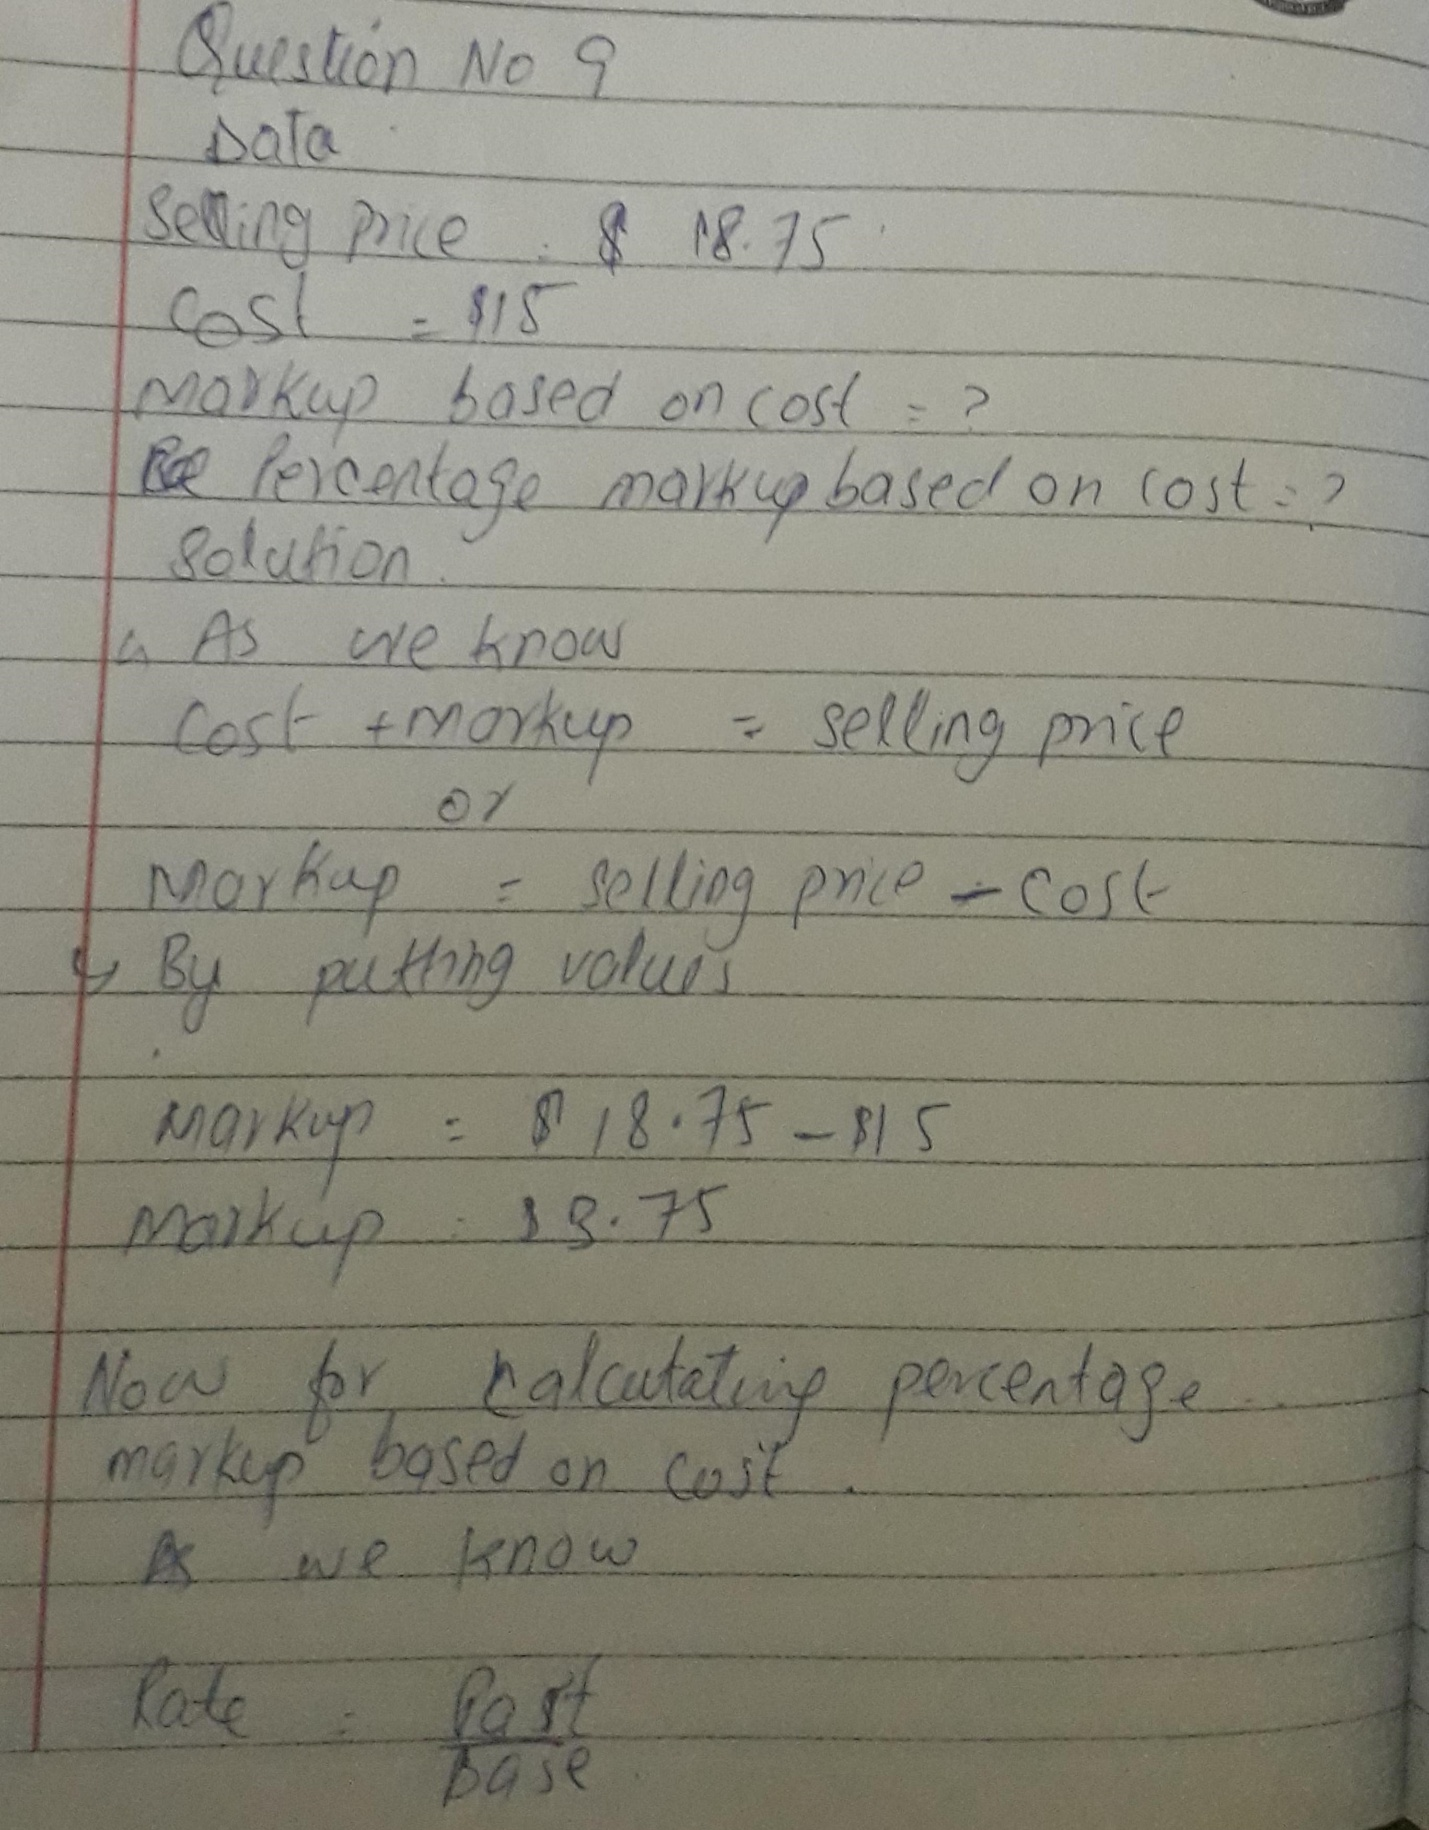 Question No 9
Data
Selling price : $ 18.75
Cost = $15
Markup based on cost = ?
Percentage markup based on cost = ?
Solution.
As we know
Cost + markup = selling price
or
Markup = selling price - cost
By putting values
Markup = $ 18.75 - $15
Markup : $3.75
Now for calcutating percentage
markup based on cost.
As we know
Rate = Part
Base